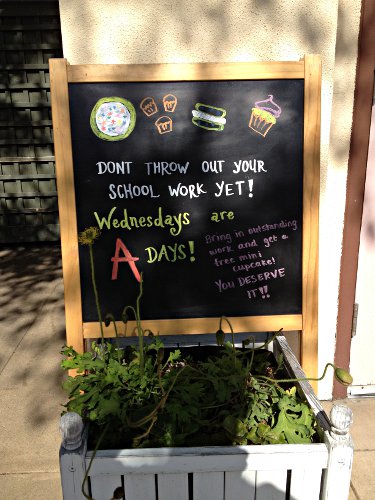 DONT THROW OUT YOUR
SCHOOL WORK YET!
Wednesdays are
A DAYS!
Bring in outstanding
work and get a
free mini
cupcake!
YOU DESERVE
IT!!